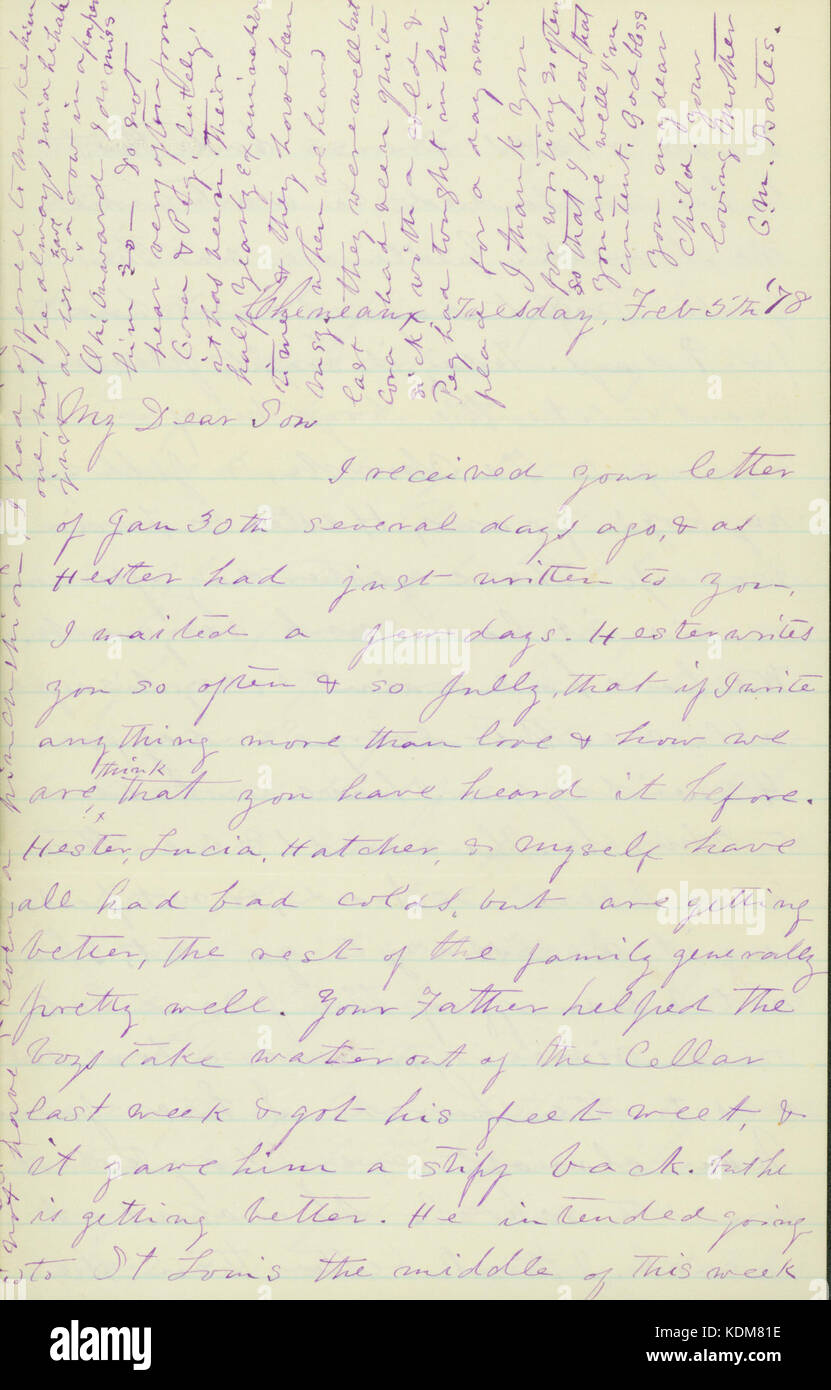 Cheneaux Tuesday, Feb 5th '78
My Dear Son
I received your letter
of Jan 30th several days ago, & as
Hester had just written to you,
I waited a few days. Hester writes
you so often & so fully, that if I write
anything more than love & how we
are, think that you have heard it before.
Hester, Lucia, Hatcher, & myself have
all had bad colds, but are getting
better, the rest of the family generally
pretty well. Your Father helped the
boys take water out of the Cellar
last week & got his feet weet, &
it gave him a stiff back. but he
is getting better. He intended going
to St Louis the middle of this week
not have even a pincushion, I had offered to make him
one, but he always said he had
just as lief have a row in a paper
Oh! Onward I do miss
him so — Do not
hear very often from
Cora & Peg, lately,
it has been their
half yearly Examination
time & they have been
busy. when we heard
last they were well but
Cora had been quite
sick with a cold &
Peg had tought in her
place for a day or more
I thank you
for writing so often
so that I know that
you are well I'm
content. God bless
you my dear
Child. Your
loving Mother
C.M. Bates.
alamy
KDM81E
www.alamy.com